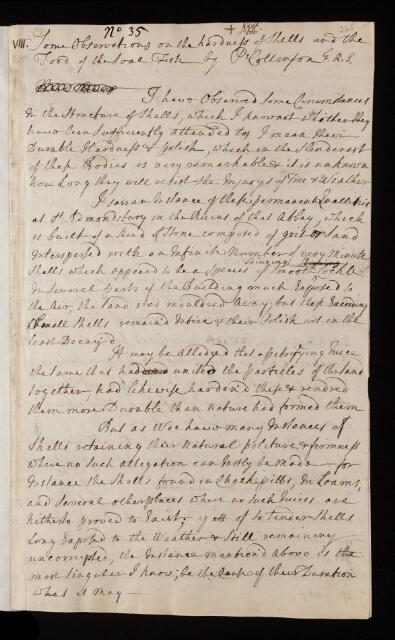 No 35
VIII. Some Observations on the hardness of Shells and the
Food of the Soal Fish by P Collinson F.R.S
I have Observed Some Circumstances
In the Structure of Shells, which I know not whether they
have been Sufficiently attended to, I mean their
Durable Hardness & polish, which in the Slenderest
of these Bodies is very remarkable & it is unknown
how Long they will resist the Injurys of Time & Weather
I saw an Instance of these permanent Qualities
at St Edmondsbury in the Ruins of that Abbey, which
is built of a kind of Stone composed of grit or Sand
Interspersed with an Infinite Number of very Minute
Shells which appeared to be a Species of Smooth Cochle
In Several parts of the Building much Exposed to
the Air, the Sand was mouldred Away, but these
Small Shells remain'd Intire & their Polish not in the
least Decay'd,
It may be Alledged that a petrifying Juice
the same that had united the particles of the Sand
together, had likewise hardened these & rendred
them more Durable than Nature had formed them
But as Wee have many Instances of
Shells retaining their Natural politure & firmness
where no such allegation can Justly be made - for
Instance the Shells found in Chalk pitts, In Loams,
and Several other places where no such Juices are
hetherto proved to Exist, yett of so tender Shells
Long Exposed to the Weather & Still remaining
uncorrupted, the Instance mention'd above is the
most Singular I know; be the Cause of their Duration
what it may -